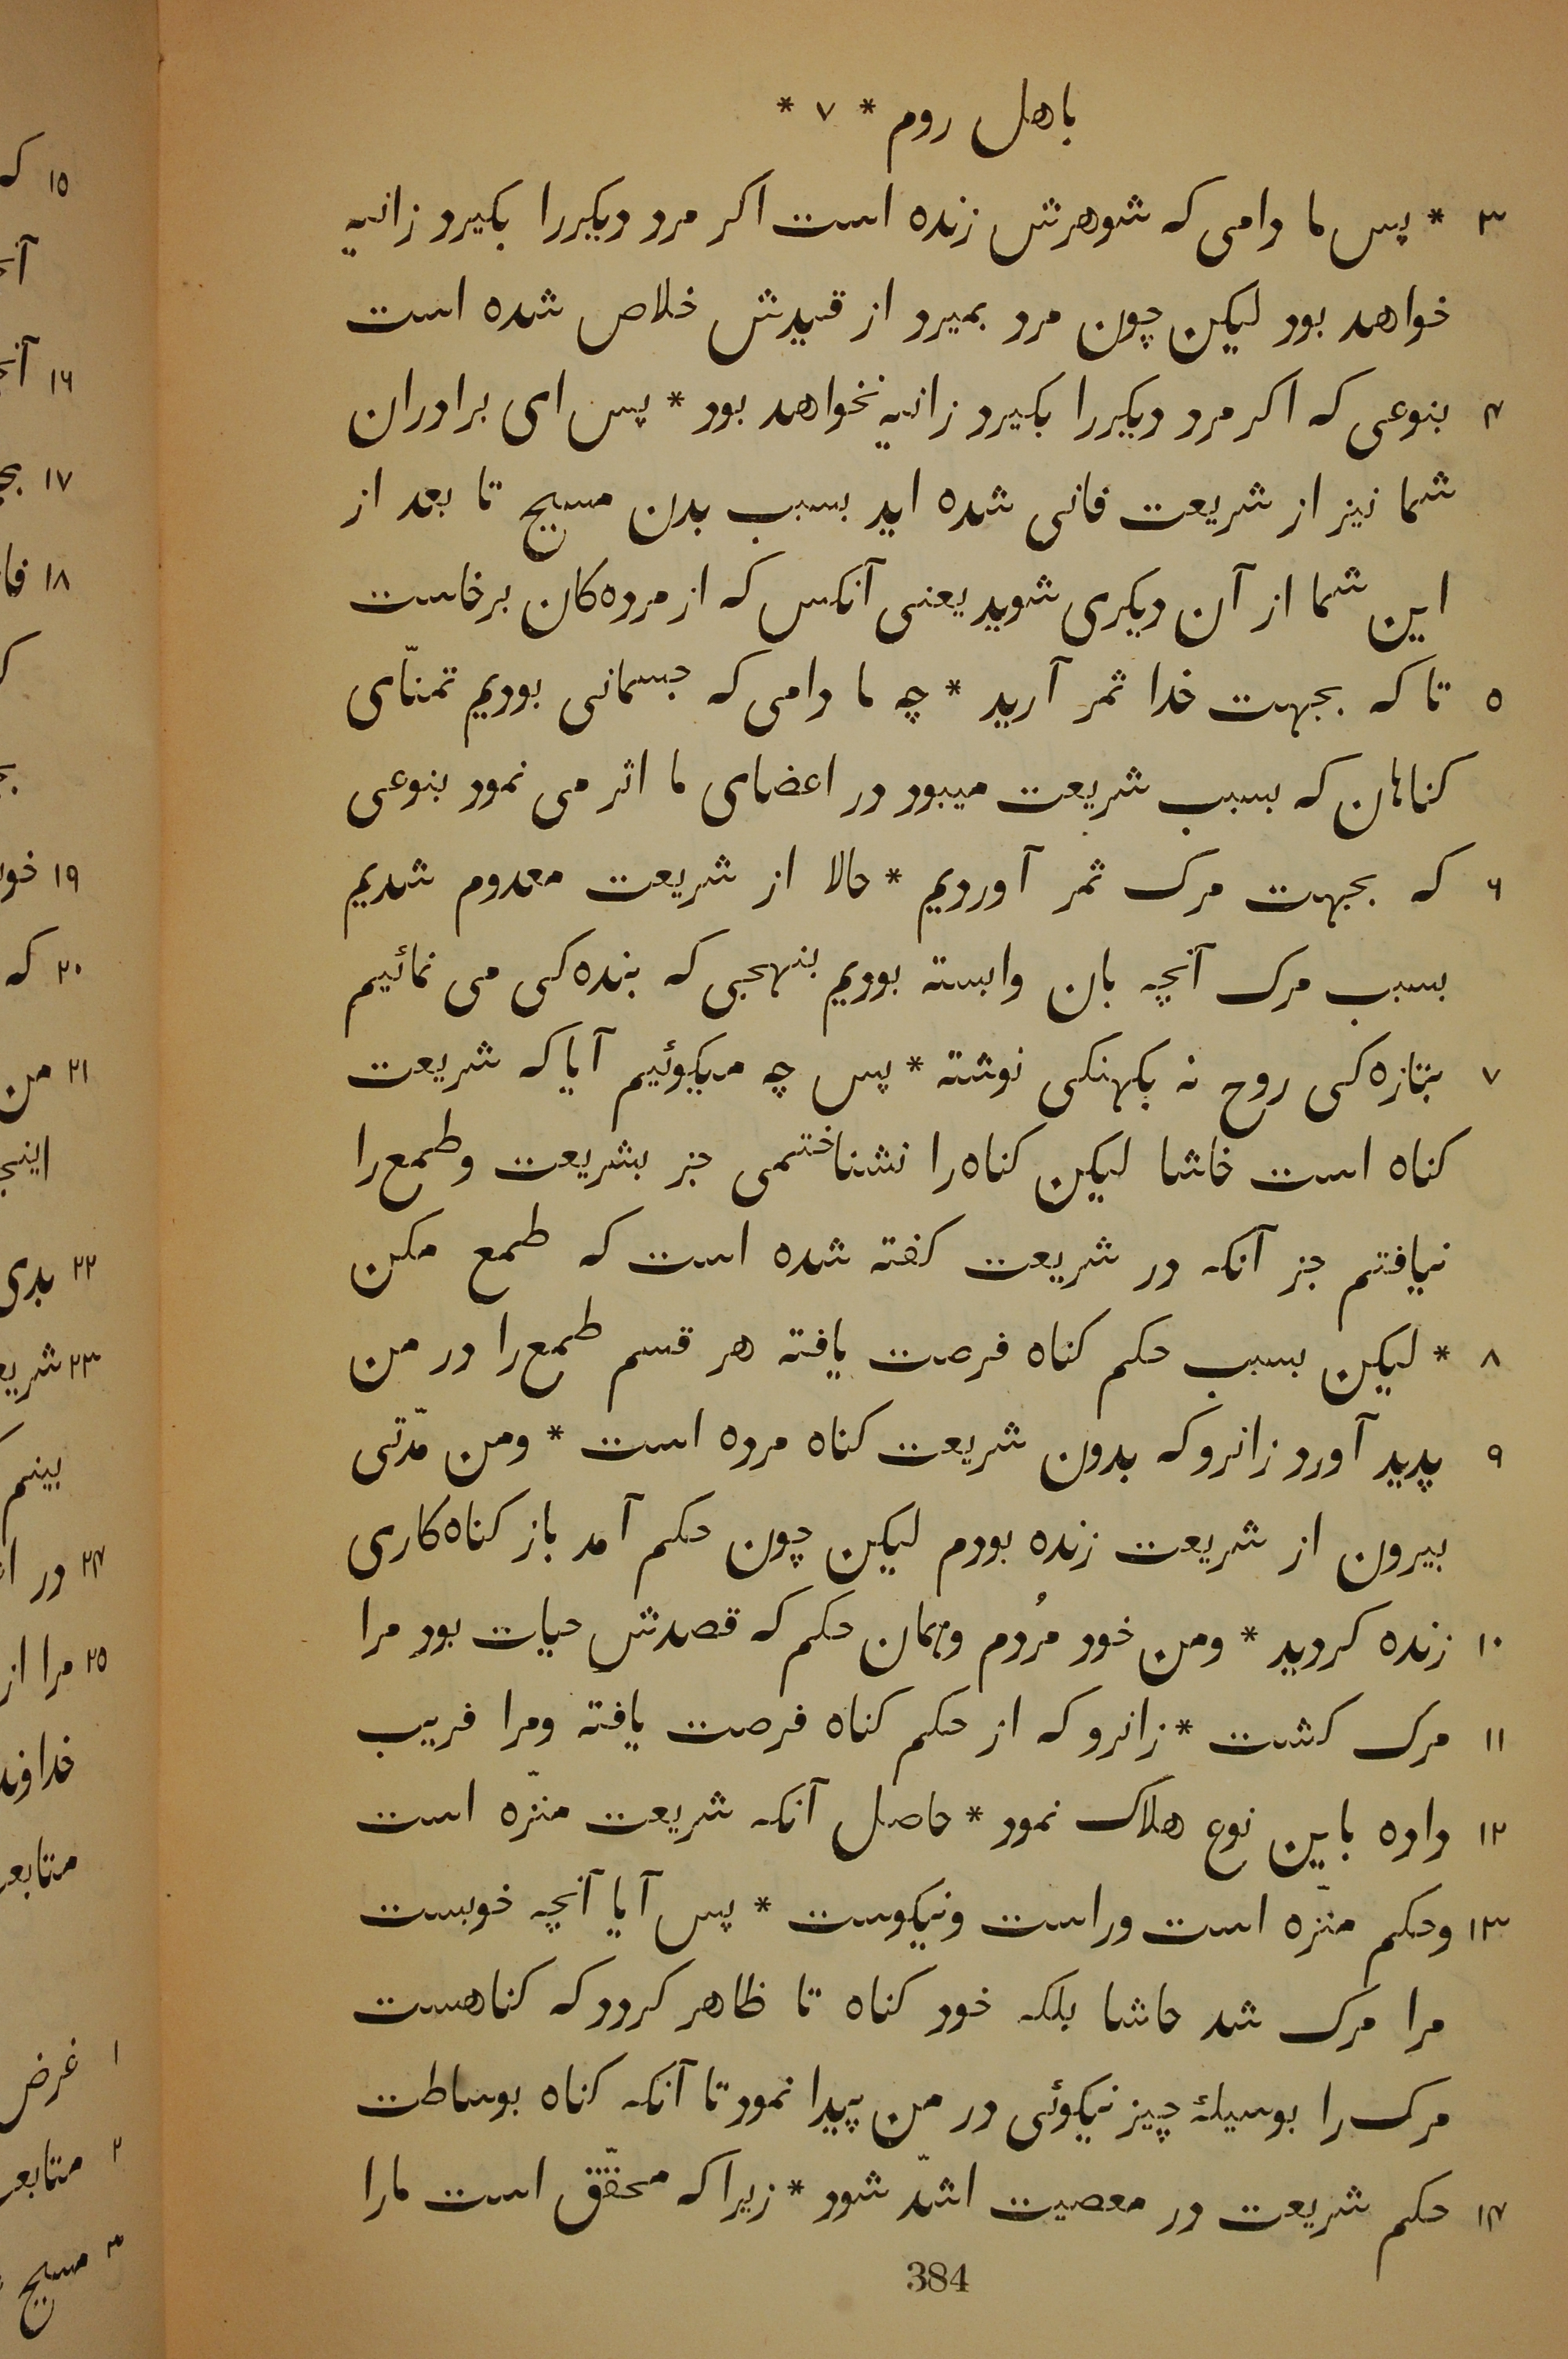 باهل روم * ۷ *
۳ * پس ما دامی که شوهرش زنده است اکر مرد دیکررا بکیرد زانیه
خواهد بود لیکن چون مرد بمیرد از قیدش خلاص شده است
۴ بنوعی که اکر مرد دیکررا بکیرد زانیه نخواهد بود * پس ای برادران
شما نیز از شریعت فانی شده اید بسبب بدن مسیح تا بعد از
این شما از آن دیکری شوید یعنی آنکس که از مرده‌کان برخاست
۵ تا که بجهت خدا ثمر آرید * چه ما دامی که جسمانی بودیم تمنّای
کناهان که بسبب شریعت میبود در اعضای ما اثر می نمود بنوعی
۶ که بجهت مرک ثمر آوردیم * حالا از شریعت معدوم شدیم
بسبب مرک آنچه بان وابسته بودیم بنهجی که بنده‌کی می نمائیم
۷ بتازه‌کی روح نه بکهنکی نوشته * پس چه میکوئیم آیا که شریعت
کناه است خاشا لیکن کناه‌را نشناختمی جز بشریعت وطمع‌را
نیافتم جز آنکه در شریعت کفته شده است که طمع مکن
۸ * لیکن بسبب حکم کناه فرصت یافته هر قسم طمع‌را در من
۹ پدید آورد زانرو که بدون شریعت کناه مرده است * ومن مدّتی
بیرون از شریعت زنده بودم لیکن چون حکم آمد باز کناه‌کاری
۱۰ زنده کردید * ومن خود مُردم وهمان حکم که قصدش حیات بود مرا
۱۱ مرک کشت * زانرو که از حکم کناه فرصت یافته ومرا فریب
۱۲ داده باین نوع هلاک نمود * حاصل آنکه شریعت منزّه است
۱۳ وحکم منزّه است وراست ونیکوست * پس آیا آنچه خوبست
مرا مرک شد حاشا بلکه خود کناه تا ظاهر کردد که کناهست
مرک را بوسیلۀ چیز نیکوئی در من پیدا نمود تا آنکه کناه بوساطت
۱۴ حکم شریعت در معصیت اشدّ شود * زیرا که محقّق است مارا
384
۱۵ که
۱۶
۱۷
۱۸
۱۹
۲۰ که
۲۱ من
۲۲ بدی
۲۳
بینم
۲۴ در
۲۵ مرا از
۱ غرض
۲
۳ مسیح